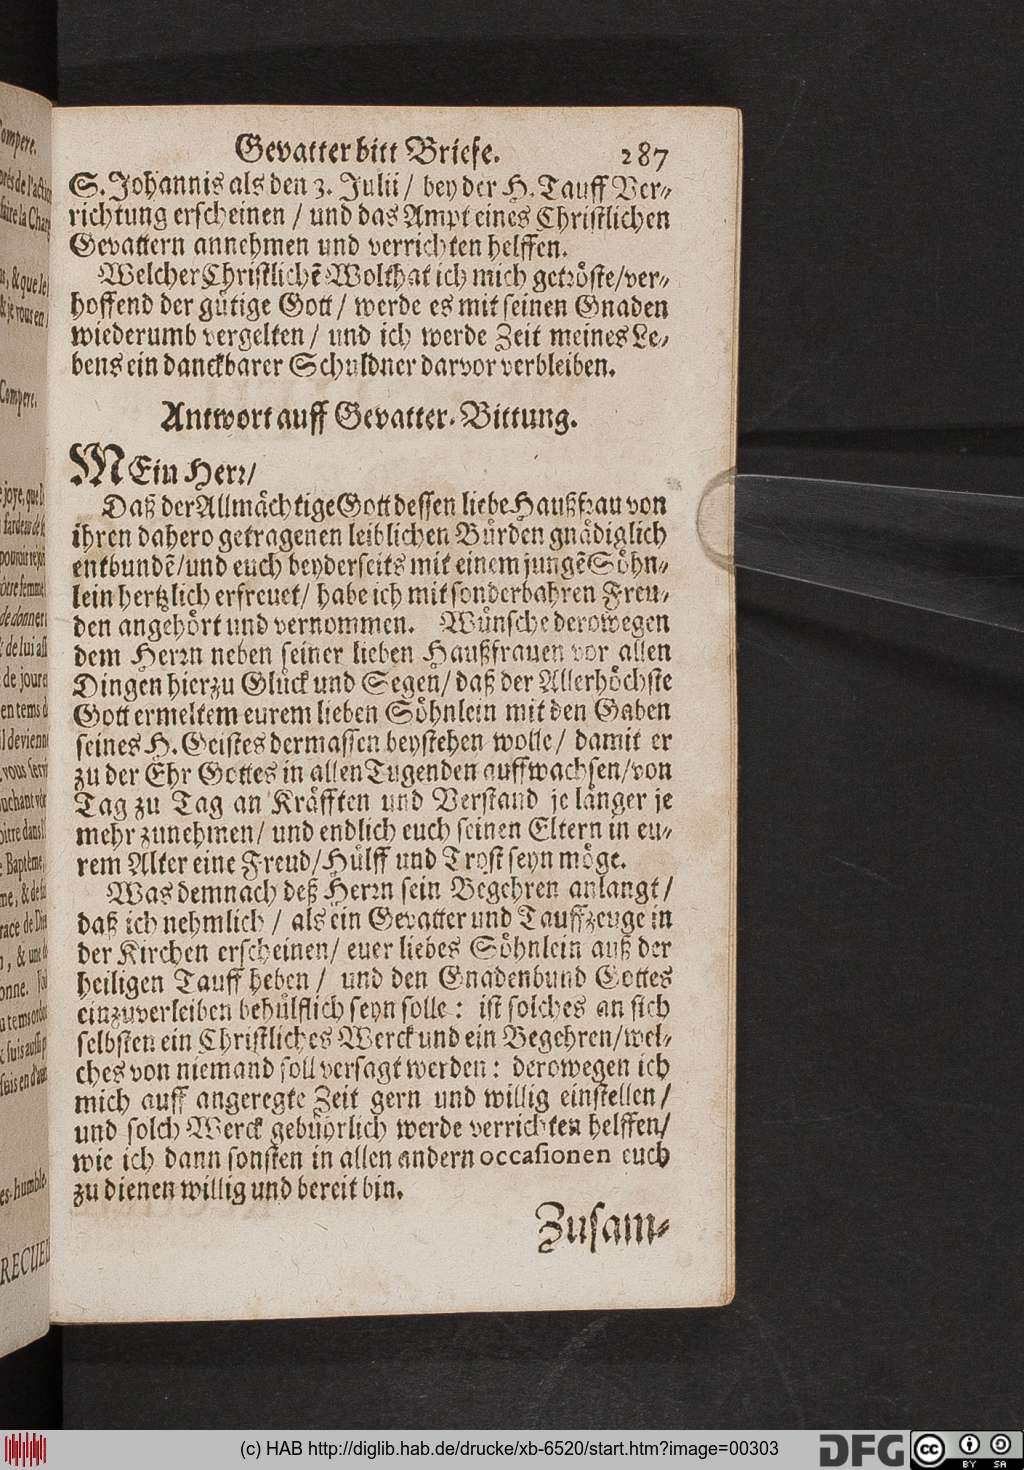 Gevatter bitt Briefe. 287
S. Johannis als den 3. Julii / bey der H. Tauff Ver-
richtung erscheinen / und das Ampt eines Christlichen
Gevattern annehmen und verrichten helffen.
Welcher Christlichẽ Wolthat ich mich getröste/ver-
hoffend der gütige Gott / werde es mit seinen Gnaden
wiederumb vergelten / und ich werde Zeit meines Le-
bens ein danckbarer Schuldner darvor verbleiben.
Antwort auff Gevatter-Bittung.
MEin Herr/
Daß der Allmächtige Gott dessen liebe Haußfrau von
ihren dahero getragenen leiblichen Bürden gnädiglich
entbundẽ/und euch beyderseits mit einem jungẽ Söhn-
lein hertzlich erfreuet/ habe ich mit sonderbahren Freu-
den angehört und vernommen. Wünsche derowegen
dem Herrn neben seiner lieben Haußfrauen vor allen
Dingen hierzu Glück und Segen/ daß der Allerhöchste
Gott ermeltem eurem lieben Söhnlein mit den Gaben
seines H. Geistes dermassen beystehen wolle/ damit er
zu der Ehr Gottes in allen Tugenden auffwachsen/von
Tag zu Tag an Kräfften und Verstand je länger je
mehr zunehmen/ und endlich euch seinen Eltern in eu-
rem Alter eine Freud/Hülff und Trost seyn möge.
Was demnach deß Herrn sein Begehren anlangt/
daß ich nehmlich / als ein Gevatter und Tauffzeuge in
der Kirchen erscheinen/ euer liebes Söhnlein auß der
heiligen Tauff heben / und den Gnadenbund Gottes
einzuverleiben behülflich seyn solle: ist solches an sich
selbsten ein Christliches Werck und ein Begehren/wel-
ches von niemand soll versagt werden: derowegen ich
mich auff angeregte Zeit gern und willig einstellen/
und solch Werck gebührlich werde verrichten helffen/
wie ich dann sonsten in allen andern occasionen euch
zu dienen willig und bereit bin.
Zusam-
(c) HAB http://diglib.hab.de/drucke/xb-6520/start.htm?image=00303
DFG cc BY SA